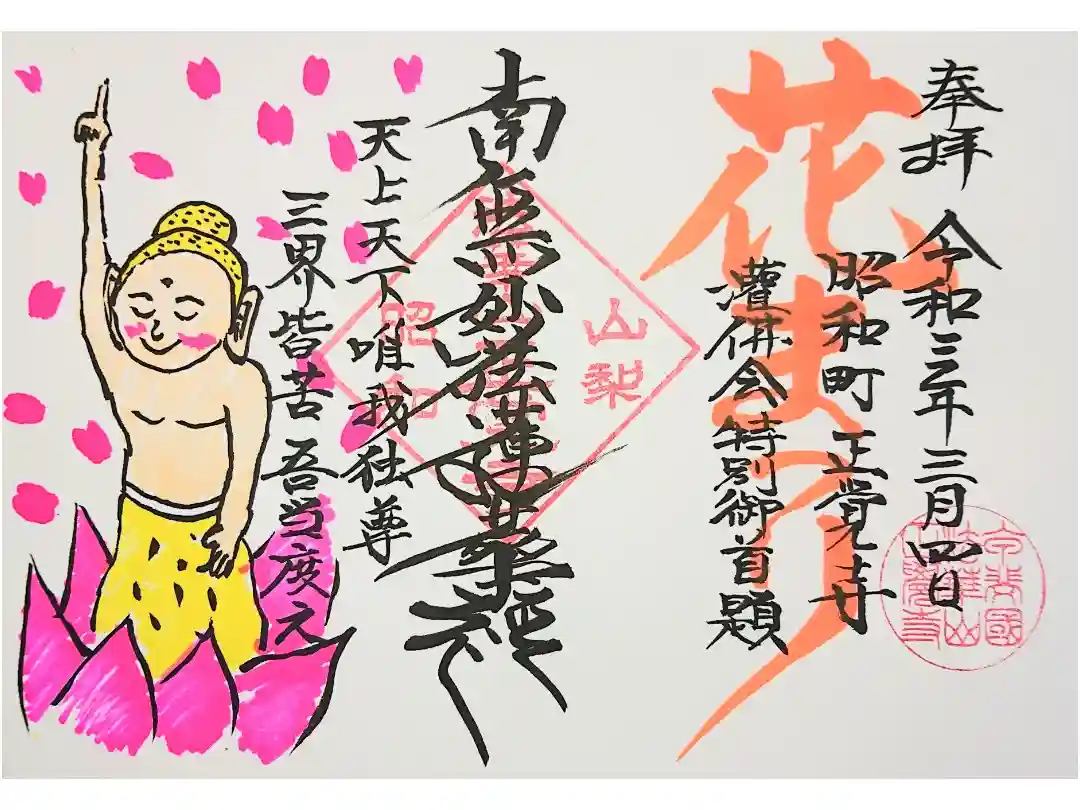 奉拝 令和三年三月四日
昭和町 正覚寺
花まつり
灌佛会特別御首題
山梨
南無妙法蓮華経
昭和
天上天下唯我独尊
三界皆苦吾当度之